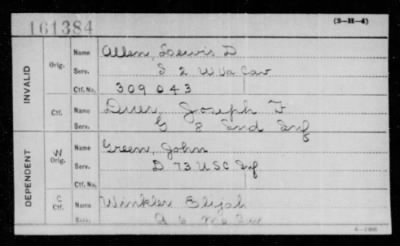 161384
(3-H-4)
INVALID
Orig.
Name Allen, Lewis D
Serv. S 2 W Va Cav
Ctf. No. 309043
Ctf.
Name Joseph F
Serv. G 8 Ind Inf
DEPENDENT
W
Orig.
Name Green, John
Serv. D 73 USC Inf
Ctf. No.
C
Ctf.
Name Winkler Elijah
Serv. A 6